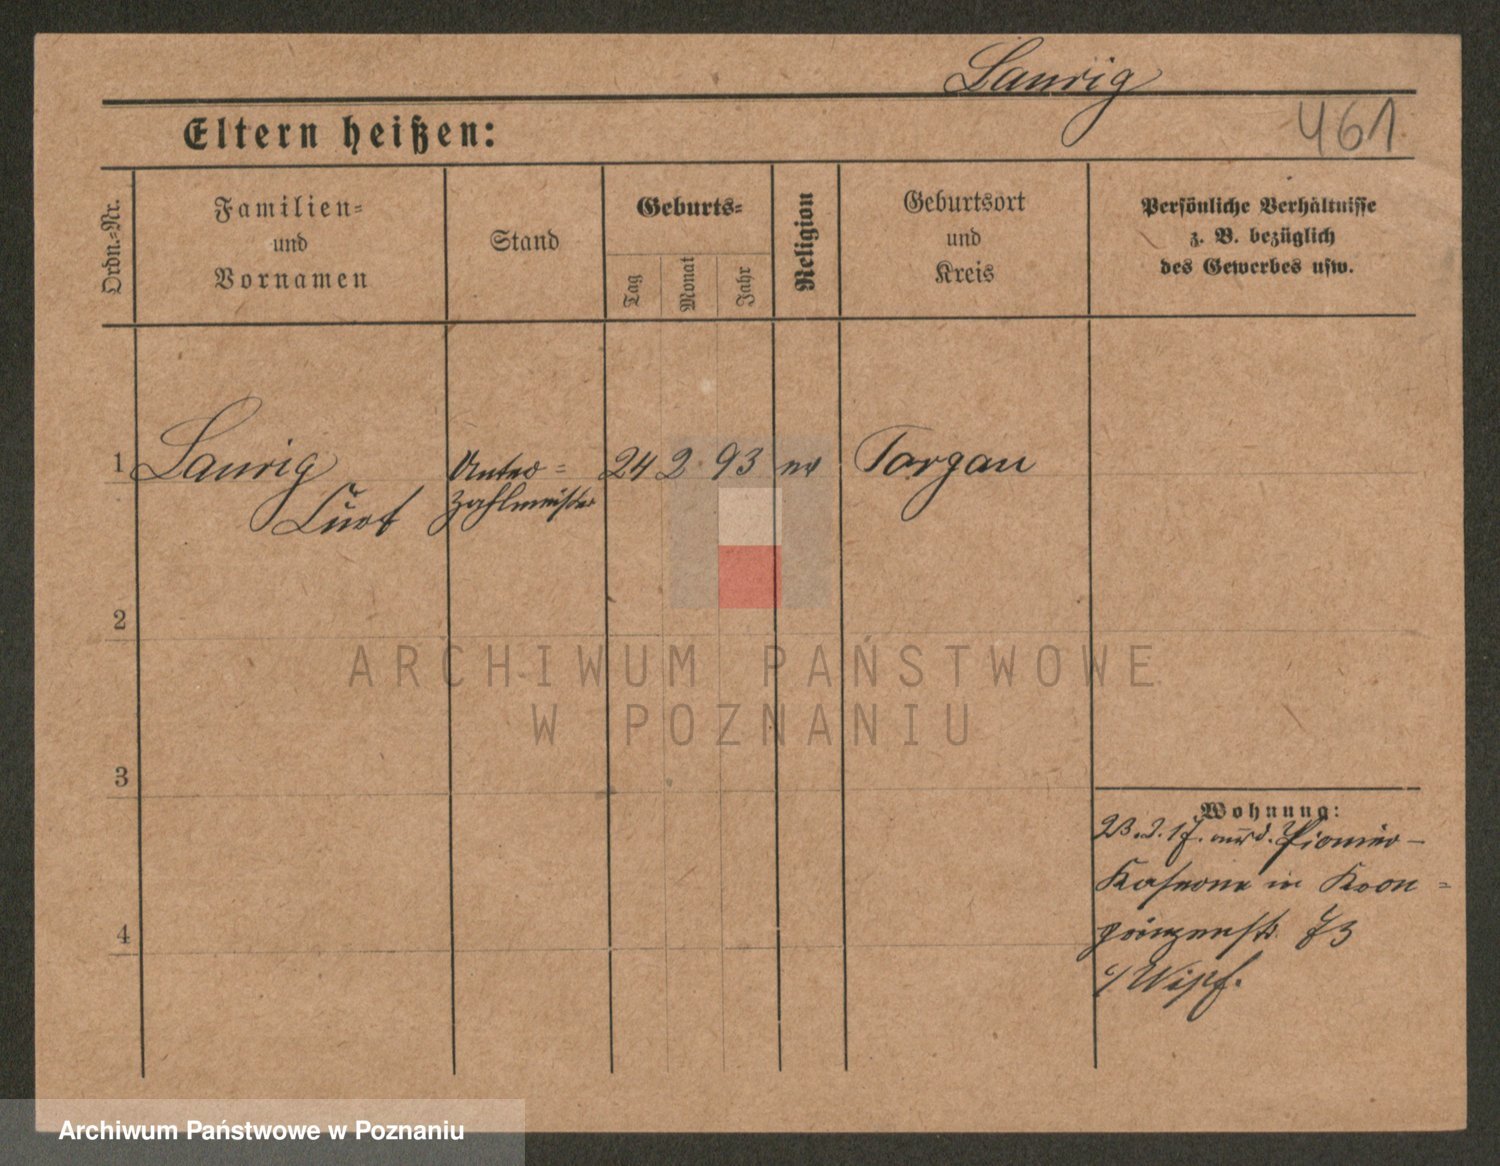 Laurig
461
Eltern heißen:
Ordn.-Nr.
Familien-
und
Vornamen
Stand
Geburts-
Tag
Monat
Jahr
Religion
Geburtsort
und
Kreis
Persönliche Verhältnisse
z. B. bezüglich
des Gewerbes usw.
1 Laurig Unter- 24 2 93 ev Torgau
Curt Zahlmeister
2
ARCHIWUM PAŃSTWOWE
W POZNANIU
3
Wohnung:
23.2.17. Pionier-
Kaserne in Kron-
prinzenstr. 73
4
Archiwum Państwowe w Poznaniu